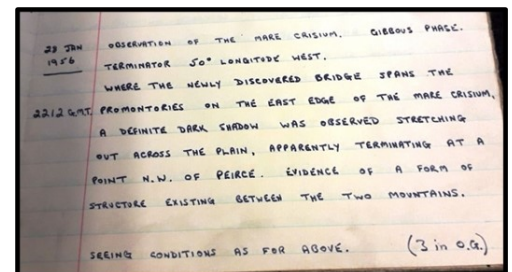 23 JAN 1956
OBSERVATION OF THE MARE CRISIUM. GIBBOUS PHASE.
TERMINATOR 50° LONGITUDE WEST.
WHERE THE NEWLY DISCOVERED BRIDGE SPANS THE
2212 G.M.T. PROMONTORIES ON THE EAST EDGE OF THE MARE CRISIUM,
A DEFINITE DARK SHADOW WAS OBSERVED STRETCHING
OUT ACROSS THE PLAIN, APPARENTLY TERMINATING AT A
POINT N.W. OF PEIRCE. EVIDENCE OF A FORM OF
STRUCTURE EXISTING BETWEEN THE TWO MOUNTAINS.
SEEING CONDITIONS AS FOR ABOVE. (3 in O.G.)